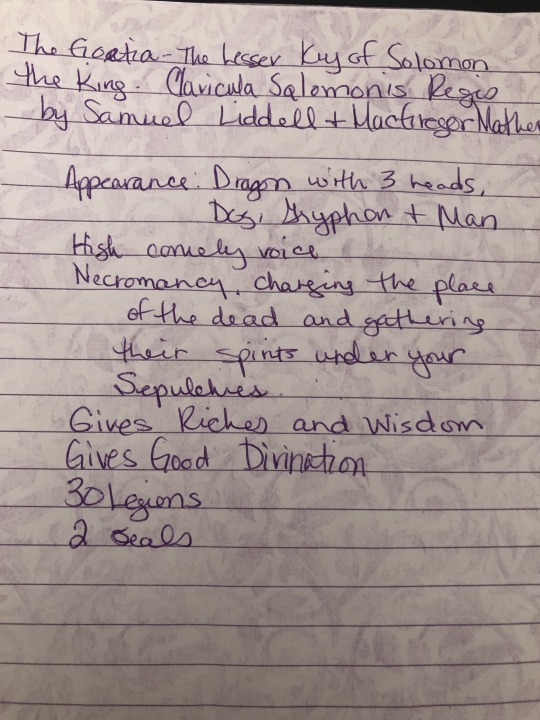 The Goetia - The Lesser Key of Solomon
the King. Clavicula Salomonis Regis
by Samuel Liddell + MacGregor Mather
Appearance: Dragon with 3 heads,
Dog, Gryphon + Man
High comely voice
Necromancy, changing the place
of the dead and gathering
their spirits under your
Sepulchres.
Gives Riches and Wisdom
Gives Good Divination
30 Legions
2 Seals